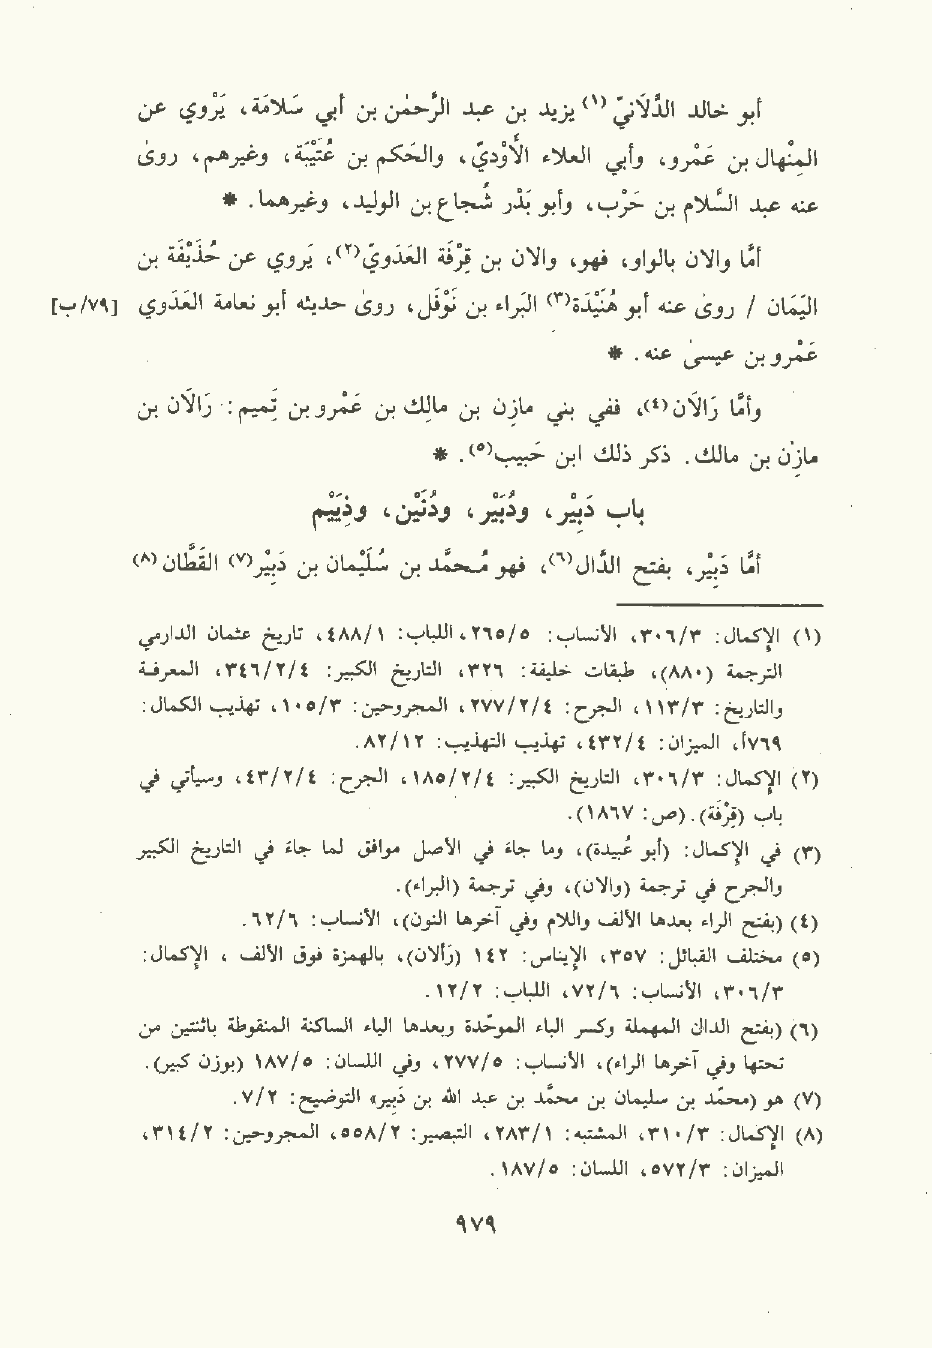 أبو خالد الدَّلاَنيّ (١) يزيد بن عبد الرَّحمٰن بن أبي سَلامَة، يَرْوي عن
المِنهال بن عَمْرو، وأبي العلاء الأَوْديّ، والحَكم بن عُتَيْبَة، وغيرهم، روىٰ
عنه عبد السَّلام بن حَرْب، وأبو بَدْر شُجاع بن الوليد، وغيرهما. *
أمَّا والان بالواو، فهو، والان بن قِرْفَة العَدَويّ(٢)، يَروي عن حُذَيْفَة بن
اليَمَان / روىٰ عنه أبو هُنَيْدَة(٣) البَراء بن نَوْفَل، روىٰ حديثه أبو نعامة العَدَوي [٧٩/ب]
عَمْرو بن عيسىٰ عنه. *
وأمَّا زَالاَن(٤)، ففي بني مازِن بن مالِك بن عَمْرو بن تَميم: زَالاَن بن
مازِن بن مالك. ذكر ذلك ابن حَبيب(٥). *
باب دَبِيْر، ودُبَيْر، ودُنَيْن، وذِيَيْم
أمَّا دَبِيْر، بفتح الدَّال(٦)، فهو مُحمَّد بن سُلَيْمان بن دَبِيْر(٧) القَطَّان(٨)
(١) الإِكمال: ٣٠٦/٣، الأنساب: ٢٦٥/٥، اللباب: ٤٨٨/١، تاريخ عثمان الدارمي
الترجمة (٨٨٠)، طبقات خليفة: ٣٢٦، التاريخ الكبير: ٣٤٦/٢/٤، المعرفة
والتاريخ: ١١٣/٣، الجرح: ٢٧٧/٢/٤، المجروحين: ١٠٥/٣، تهذيب الكمال:
٧٦٩أ، الميزان: ٤٣٢/٤، تهذيب التهذيب: ٨٢/١٢.
(٢) الإِكمال: ٣٠٦/٣، التاريخ الكبير: ١٨٥/٢/٤، الجرح: ٤٣/٢/٤، وسيأتي في
باب (قِرْفَة). (ص: ١٨٦٧).
(٣) في الإِكمال: (أبو عُبيدة)، وما جاء في الأصل موافق لما جاء في التاريخ الكبير
والجرح في ترجمة (والان)، وفي ترجمة (البراء).
(٤) (بفتح الراء بعدها الألف واللام وفي آخرها النون)، الأنساب: ٦٢/٦.
(٥) مختلف القبائل: ٣٥٧، الإِيناس: ١٤٢ (زَألان)، بالهمزة فوق الألف، الإِكمال:
٣٠٦/٣، الأنساب: ٧٢/٦، اللباب: ١٢/٢.
(٦) (بفتح الدال المهملة وكسر الباء الموحَّدة وبعدها الياء الساكنة المنقوطة باثنتين من
تحتها وفي آخرها الراء)، الأنساب: ٢٧٧/٥، وفي اللسان: ١٨٧/٥ (بوزن كبير).
(٧) هو (محمَّد بن سليمان بن محمَّد بن عبد الله بن دَبير» التوضيح: ٧/٢.
(٨) الإِكمال: ٣١٠/٣، المشتبه: ٢٨٣/١، التبصير: ٥٥٨/٢، والمجروحين: ٣١٤/٢،
الميزان: ٥٧٢/٣، اللسان: ١٨٧/٥.
٩٧٩